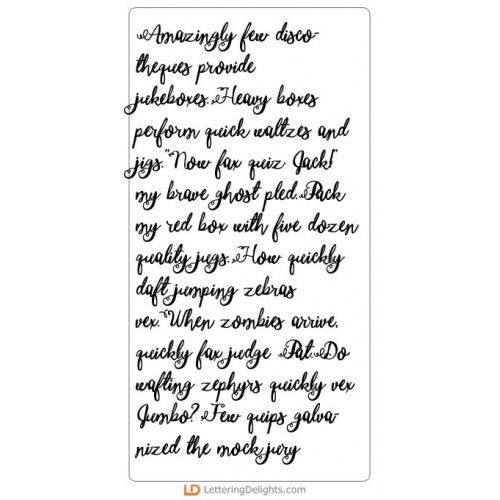 Amazingly few disco-
theques provide
jukeboxes. Heavy boxes
perform quick waltzes and
jigs. "Now fax quiz Jack!"
my brave ghost pled. Pack
my red box with five dozen
quality jugs. How quickly
daft jumping zebras
vex. "When zombies arrive,
quickly fax judge Pat. Do
wafting zephyrs quickly vex
Jumbo? Few quips galva-
nized the mock jury
LD LetteringDelights.com